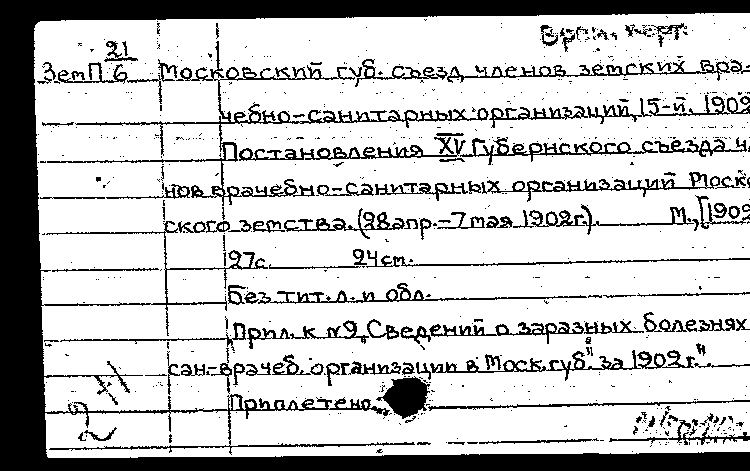 Врем. карт.
ЗемП 21/6 Московский губ. съезд членов земских вра-
чебно-санитарных организаций, 15-й. 1902
Постановления XV Губернского съезда чл
нов врачебно-санитарных организаций Моско
ского земства. (28 апр.-7 мая 1902 г.). М., [1902
27с. 24см.
Без тит. л. и обл.
"Прил. к №9 "Сведений о заразных болезнях
сан-врачеб. организации в Моск. губ" за 1902 г.".
Приплетено
2 Н